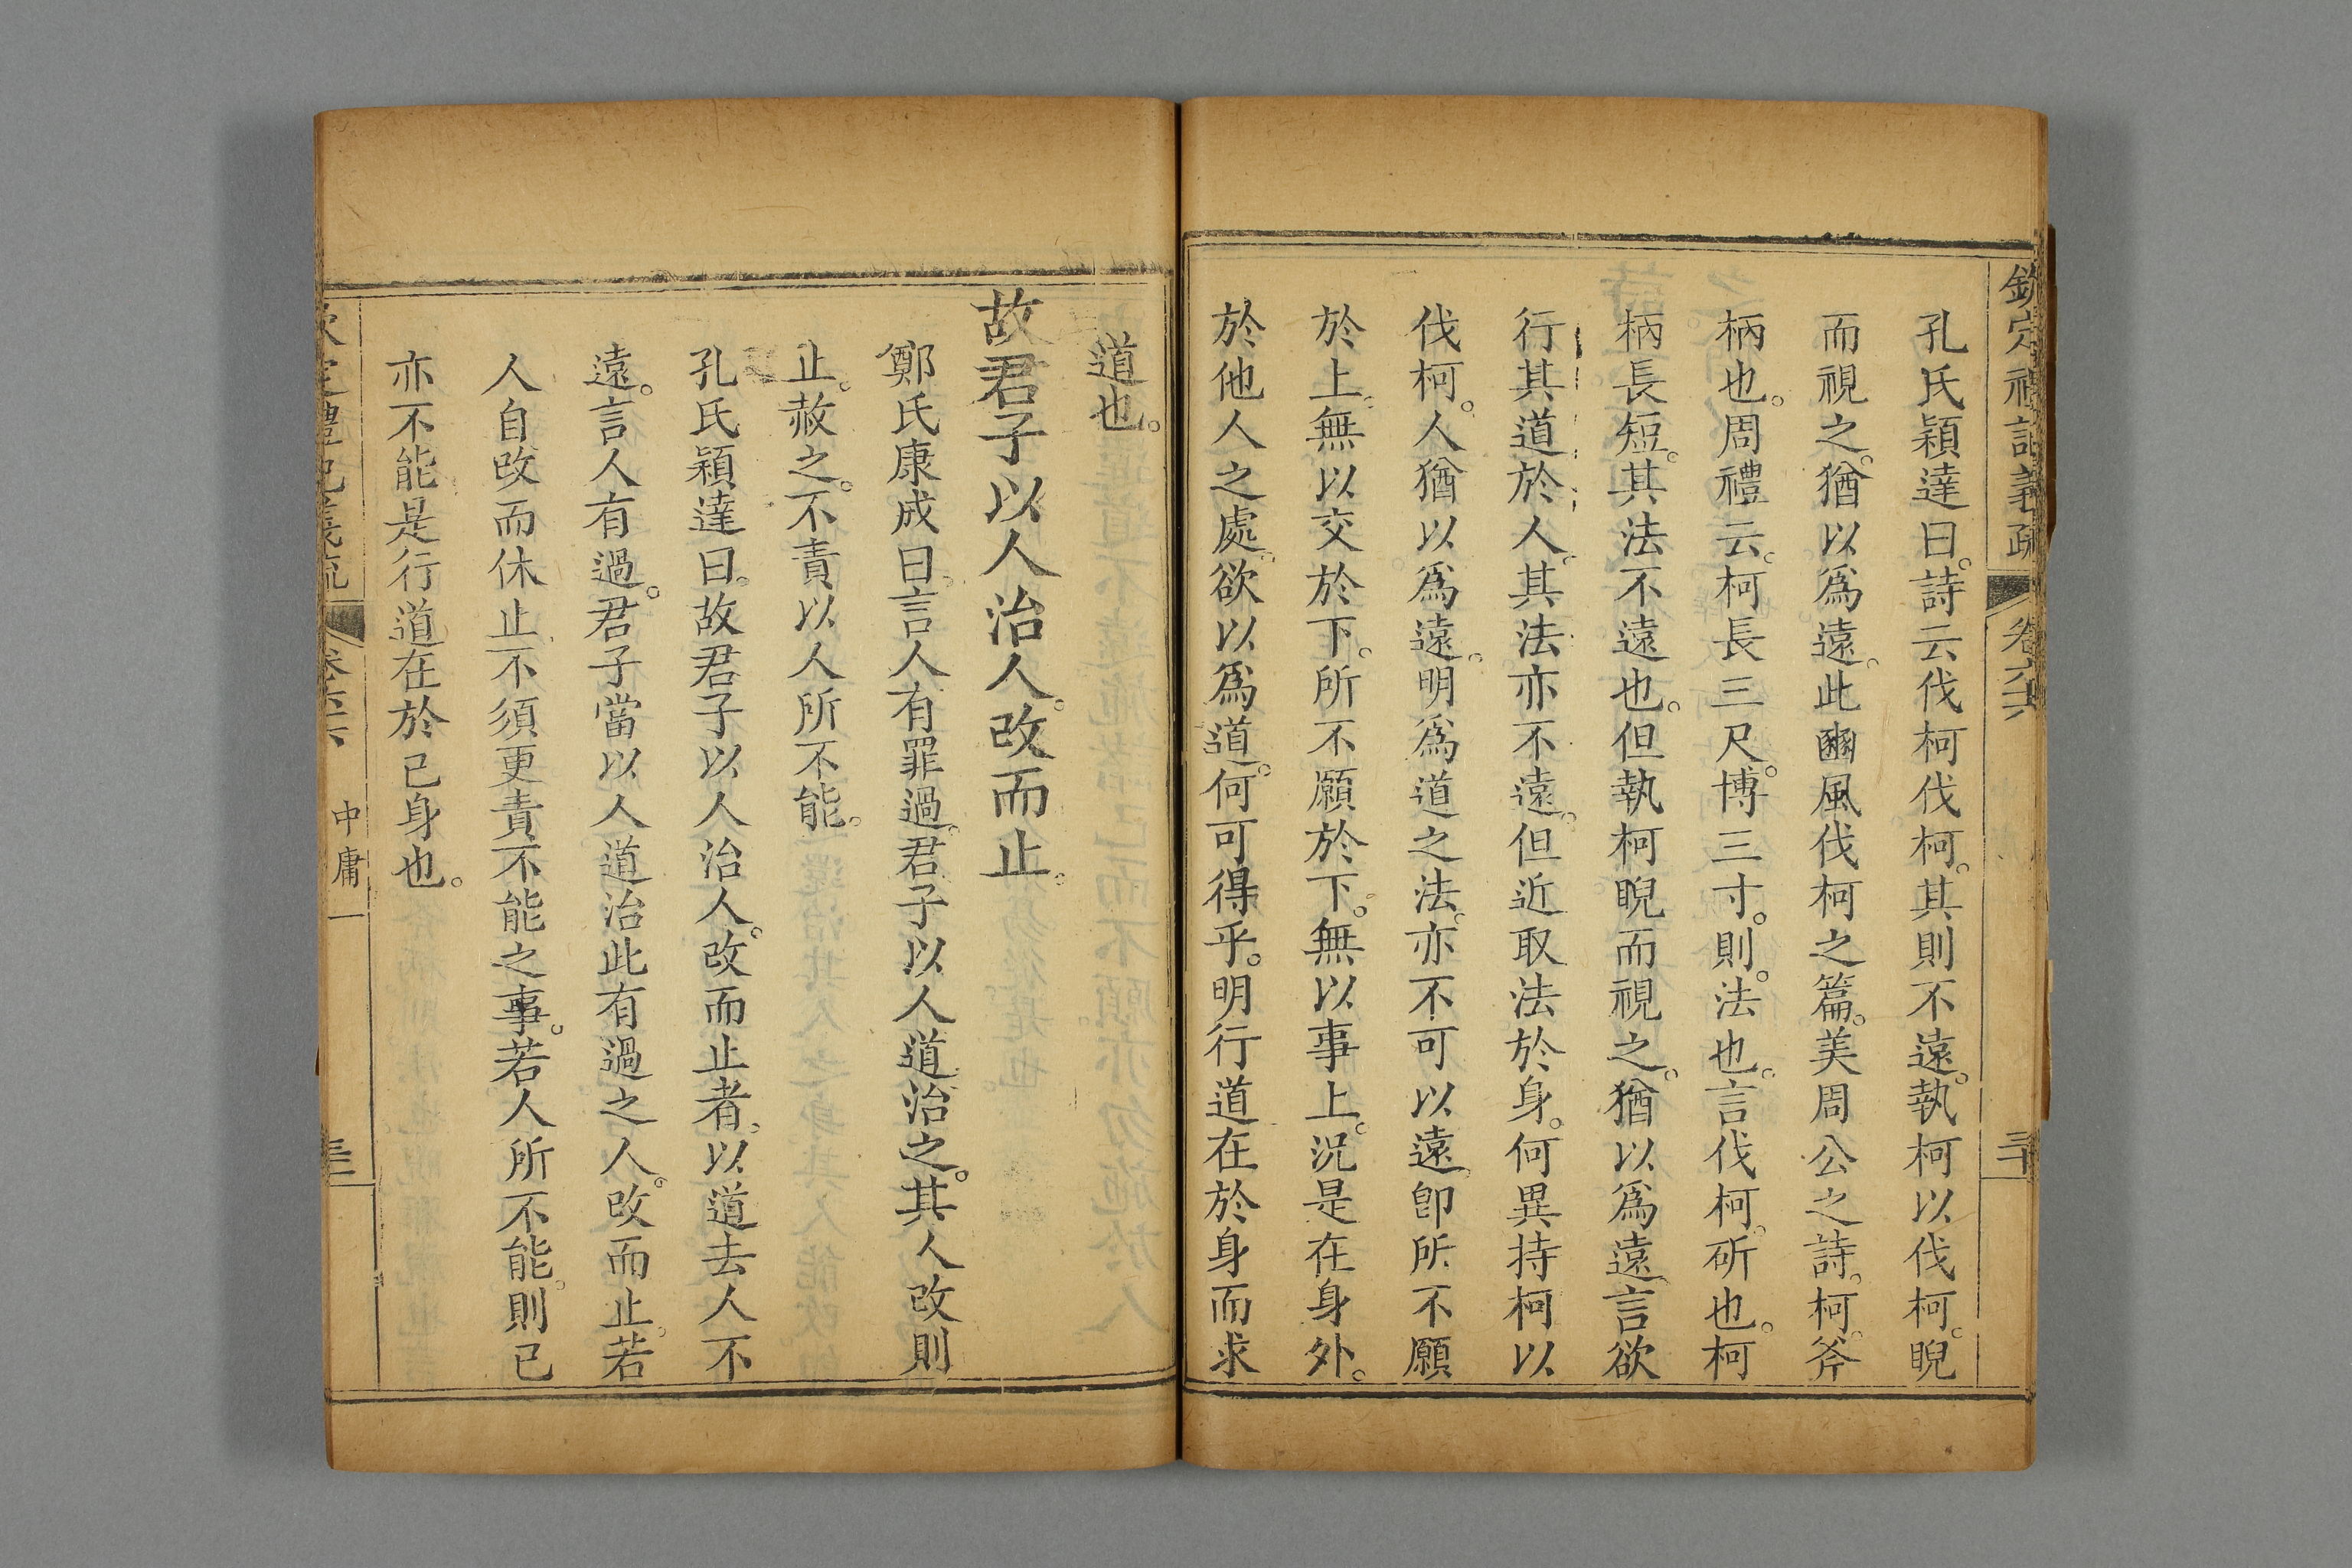 欽定禮記義疏 卷六六 三十
孔氏穎達曰。詩云伐柯伐柯。其則不遠。執柯以伐柯。睨
而視之。猶以爲遠。此豳風伐柯之篇。美周公之詩。柯。斧
柄也。周禮云。柯長三尺。博三寸。則。法也。言伐柯。斫也。柯
柄長短。其法不遠也。但執柯睨而視之。猶以爲遠。言欲
行其道於人。其法亦不遠。但近取法於身。何異持柯以
伐柯。人猶以爲遠。明爲道之法。亦不可以遠。卽所不願
於上。無以交於下。所不願於下。無以事上。況是在身外。
於他人之處。欲以爲道。何可得乎。明行道在於身而求
道也。
故君子以人治人。改而止。
鄭氏康成曰。言人有罪過。君子以人道治之。其人改則
止。赦之。不責以人所不能。
孔氏穎達曰。故君子以人治人。改而止者。以道去人不
遠。言人有過。君子當以人道治此有過之人。改而止。若
人自改而休止。不須更責不能之事。若人所不能。則已
亦不能是行道在於已身也。
欽定禮記義疏 卷六六 中庸一